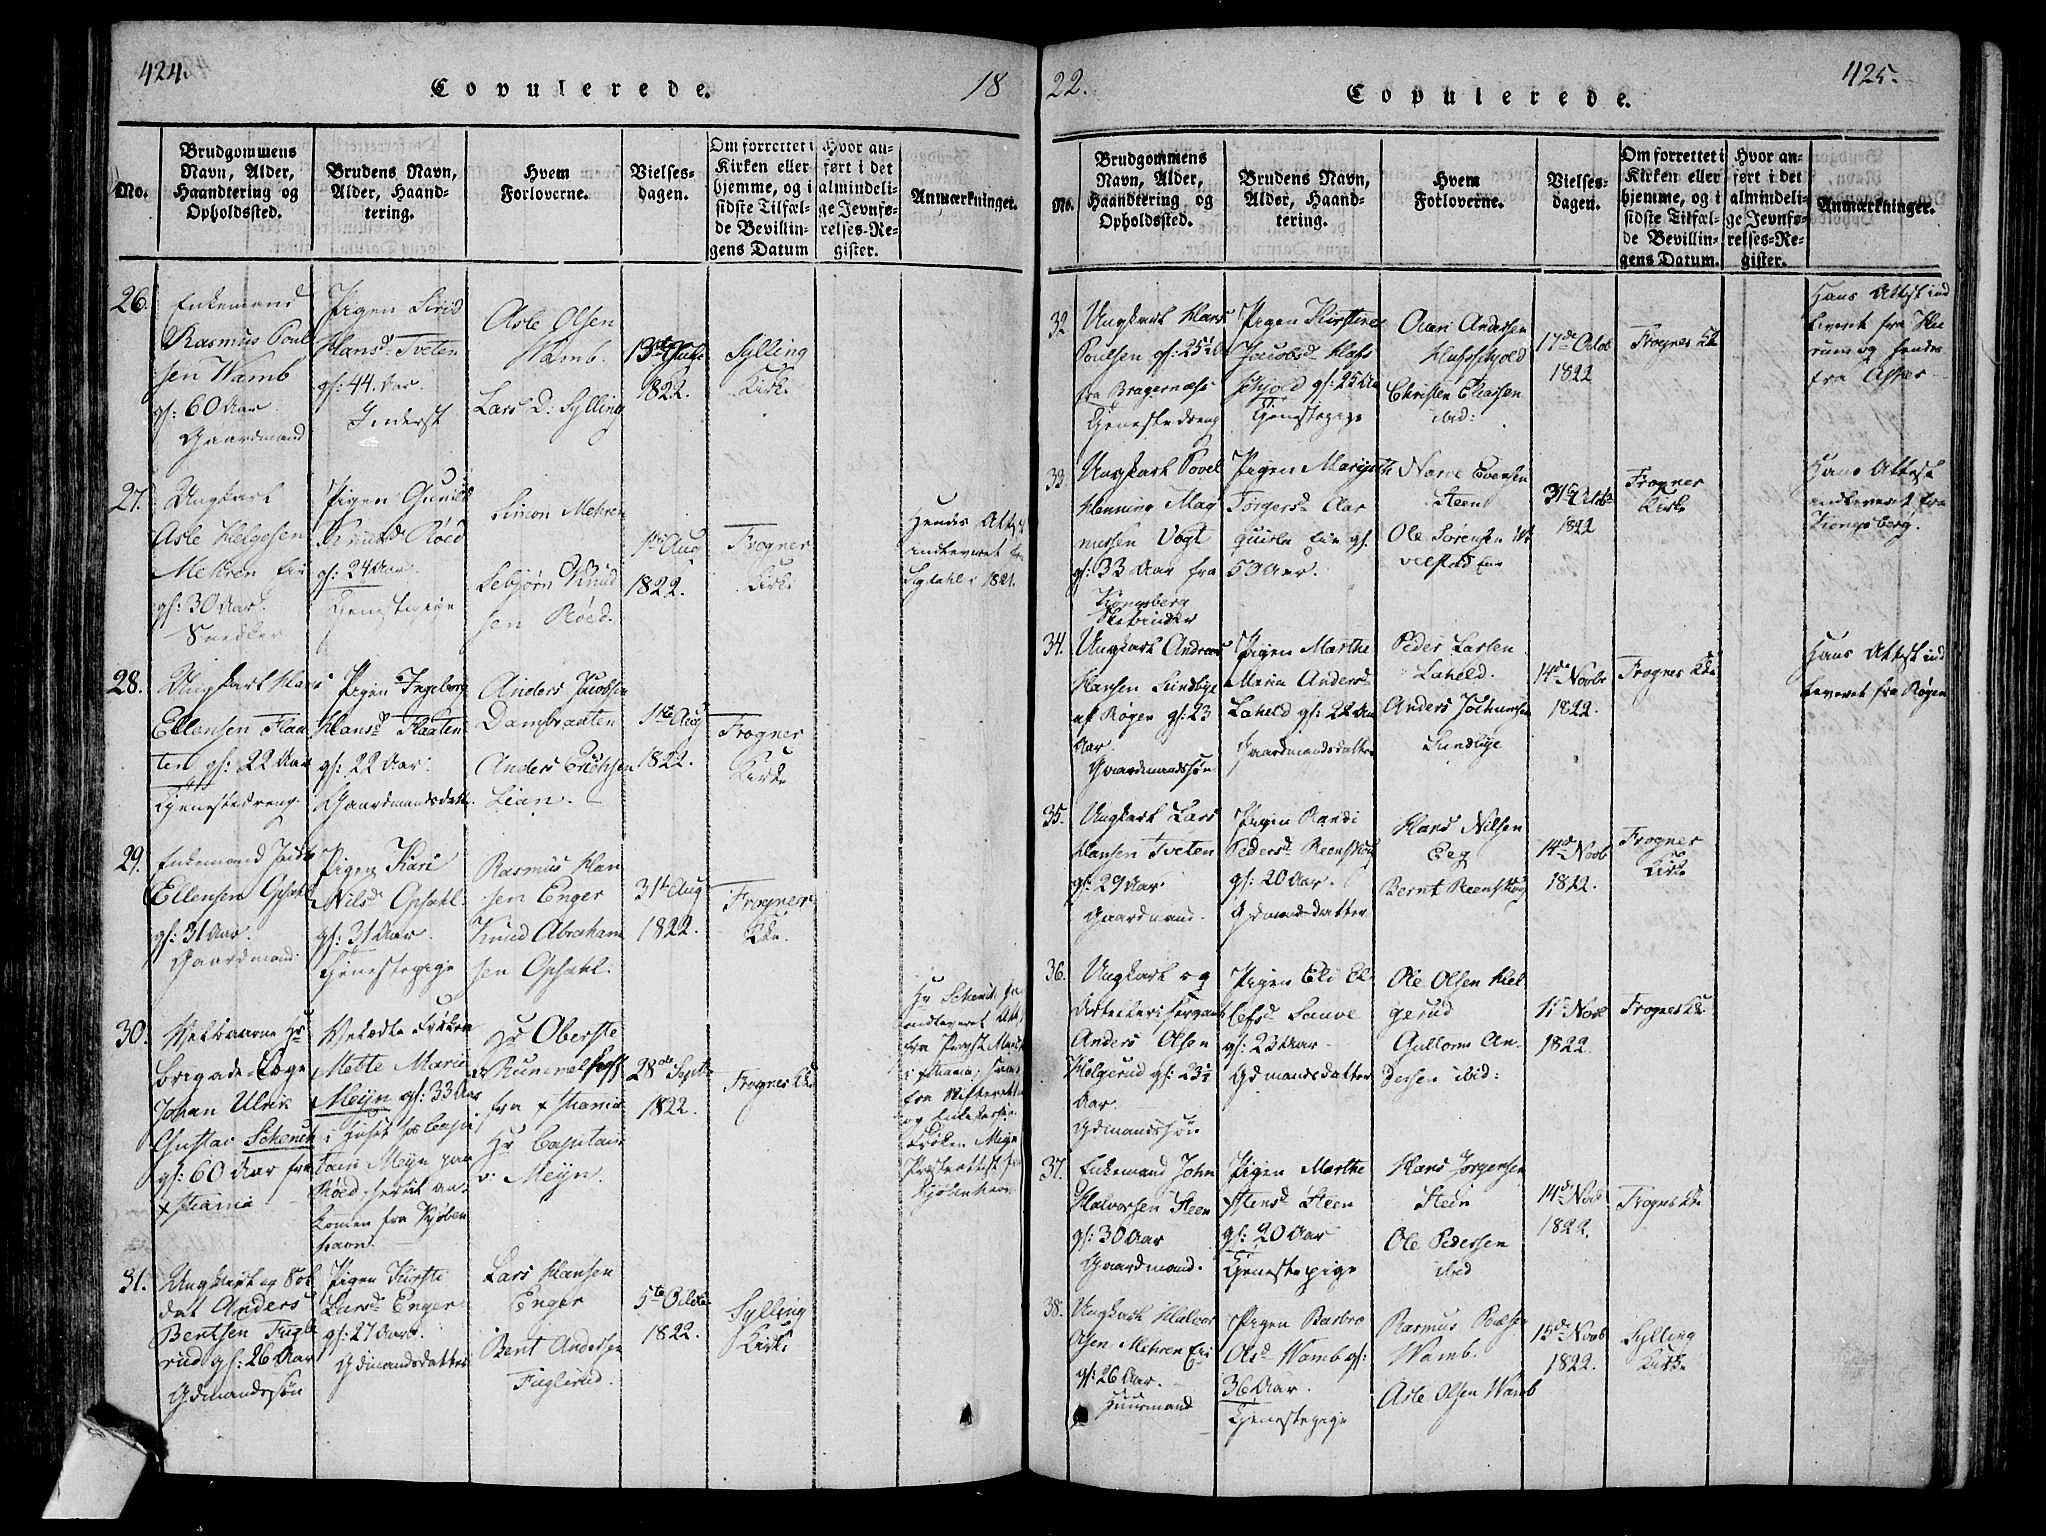 424.
Copulerede.
18
No.
Brudgommens
Navn, Alder,
Haandtering og
Opholdssted.
Brudens Navn,
Alder, Haand-
tering.
Hvem
Forloverne.
Vielses-
dagen.
Om forrettet i
Kirken eller
hjemme, og i
sidste Tilfæl-
de Bevillin-
gens Datum
Hvor an-
ført i det
almindeli-
ge Jevnfø-
relses-Re-
gister.
Anmærkninger.
26.
Enkemand
Rasmus Poul
sen Wamb
gl: 60 Aar
Gaardmand
Pigen Sirid
Hansd. Tveten
gl: 44 Aar.
Inderst
Asle Olsen
Wamb.
Lars D: Sylling
1822.
Sylling
Kirke
27.
Ungkarl
Asle Helgesen
Mehren Eie
gl: 30 Aar.
Snedker
Pigen Gunild
Knudsd Røed
gl: 24 Aar.
Tjenestepige
Simon Mehren
Lebjørn Knud
sen Røed.
1ste Aug
1822.
Frogner
Kirke
Hendes Attest
indleveret fra
Sigdahl i 1821.
28.
Ungkarl Hans
Ellensen Flaa
ten gl: 22 Aar
Tjenestedreng
Pigen Ingeborg
Hansd. Flaaten
gl: 22 Aar.
Gaardmandsdatt.
Anders Jacobsen
Dambraaten
Anders Erichsen
Lian.
1ste Aug
1822.
Frogner
Kirke
29.
Enkemand
Ellensen Opsahl
gl: 31 Aar.
Gaardmand
Pigen Kari
Nilsd. Opsahl.
gl: 31 Aar.
Tjenestepige
Rasmus Han
sen Enger
Knud Abraham
sen Opsahl.
31te Aug
1822.
Frogner
Kke.
30.
Velbaarne Hr
Brigade-Læge
Johan Ulrik
Gustav Schenck
gl: 60 Aar fra
Xstiania
Velædle Frøken
Mette Marie
Meijn gl: 33 Aar
i Huset hos Capi
tain Meijn paa
Røed, hertil an-
kommen fra Kjøben
havn.
Hr Oberste
v Rummelhoff
fra Xstiania
Hr Capitain
v. Meijn.
28de Septr
1822.
Frogner Kke
Hr Schencks
indleveret Attest
fra Provst
i Xstiania,
fra
og
Frøken Meijn
Præsteattest fra
Kjøbenhavn
31.
Ungkarl og Sol
dat Anders
Bentsen Fugle
rud gl: 26 Aar
Gdmandssøn
Pigen Kirsti
Larsd. Enger
gl: 27 Aar.
Gdmandsdatter
Lars Hansen
Enger
Bent Andersen
Fuglerud.
5te Octbr
1822.
Sylling
Kirke
22.
Copulerede.
425.
No.
Brudgommens
Navn, Alder,
Haandtering og
Opholdssted.
Brudens Navn,
Alder, Haand-
tering.
Hvem
Forloverne.
Vielses-
dagen.
Om forrettet i
Kirken eller
hjemme, og i
sidste Tilfæl-
de Bevillin-
gens Datum.
Hvor an-
ført i det
almindeli-
ge Jevnfø-
relses-Re-
gister.
Anmærkninger.
32.
Ungkarl Hans
Poulsen gl: 25½ Aar
fra Bragernæs
Tjenestedreng
Pigen Kirstine
Jacobsd.
gl: 25 Aar
Tjenestepige
Andersen
Christen Eliassen
ibid:
17de Octob
1822
Frogner Kke
Hans Attest ind
leveret fra
og hendes
fra Asker
33.
Ungkarl Povel
Henning Mag
nussen Vogt
gl: 33 Aar fra
Kongsberg
Pigen
Torgersd. Aar
Eie gl.
53 Aar.
Narve Evensen
Steen
Ole Sørensen
Eie
31te Octbr
1822
Frogner
Kirke
Hans Attest
indleveret fra
Kongsberg.
34.
Ungkarl Andreas
Hansen Sundbye
af Røgen gl: 23
Aar.
Gaardmandssøn
Pigen Marthe
Maria Andersd
Laheld gl: 22 Aar
Gaardmandsdatter
Peder Larsen
Laheld.
Anders Jochumsen
Sundbye
14de Novbr
1822.
Frogner Kke
Hans Attest ind
leveret fra Røgen
35.
Ungkarl Lars
Hansen Tveten
gl: 29 Aar
Gaardmand.
Pigen Randi
Pedersd. Reenskoug
gl: 20 Aar.
Gdmandsdatter
Hans Nilsen
Eeg
Bernt Reenskoug
14de Novb
1822.
Frogner
Kirke
36.
Ungkarl og
Sergeant
Anders Olsen
Helgerud gl: 23½
Aar.
Gdmandssøn
Pigen Eli El-
lefsd
gl: 23 Aar
Gdmandsdatter
Ole Olsen Hel
gerud
Gullorm An-
dersen ibid:
1822.
Frogner Kke
37.
Enkemand John
Halvorsen Steen
gl: 30 Aar
Gaardmand.
Pigen Marthe
Steen
gl: 20 Aar
Tjenestepige
Hans Jørgensen
Steen
Ole Pedersen
ibid
14de Novb
1822.
Frogner Kke
38.
Ungkarl Halvor
Olsen Mehren Eie
gl: 26 Aar.
Huusmand
Pigen Barbro
Olsd Wamb gl:
36 Aar.
Tjenestepige
Rasmus Poulsen
Wamb.
Asle Olsen Wamb
15de Novb
1822.
Sylling
Kirke